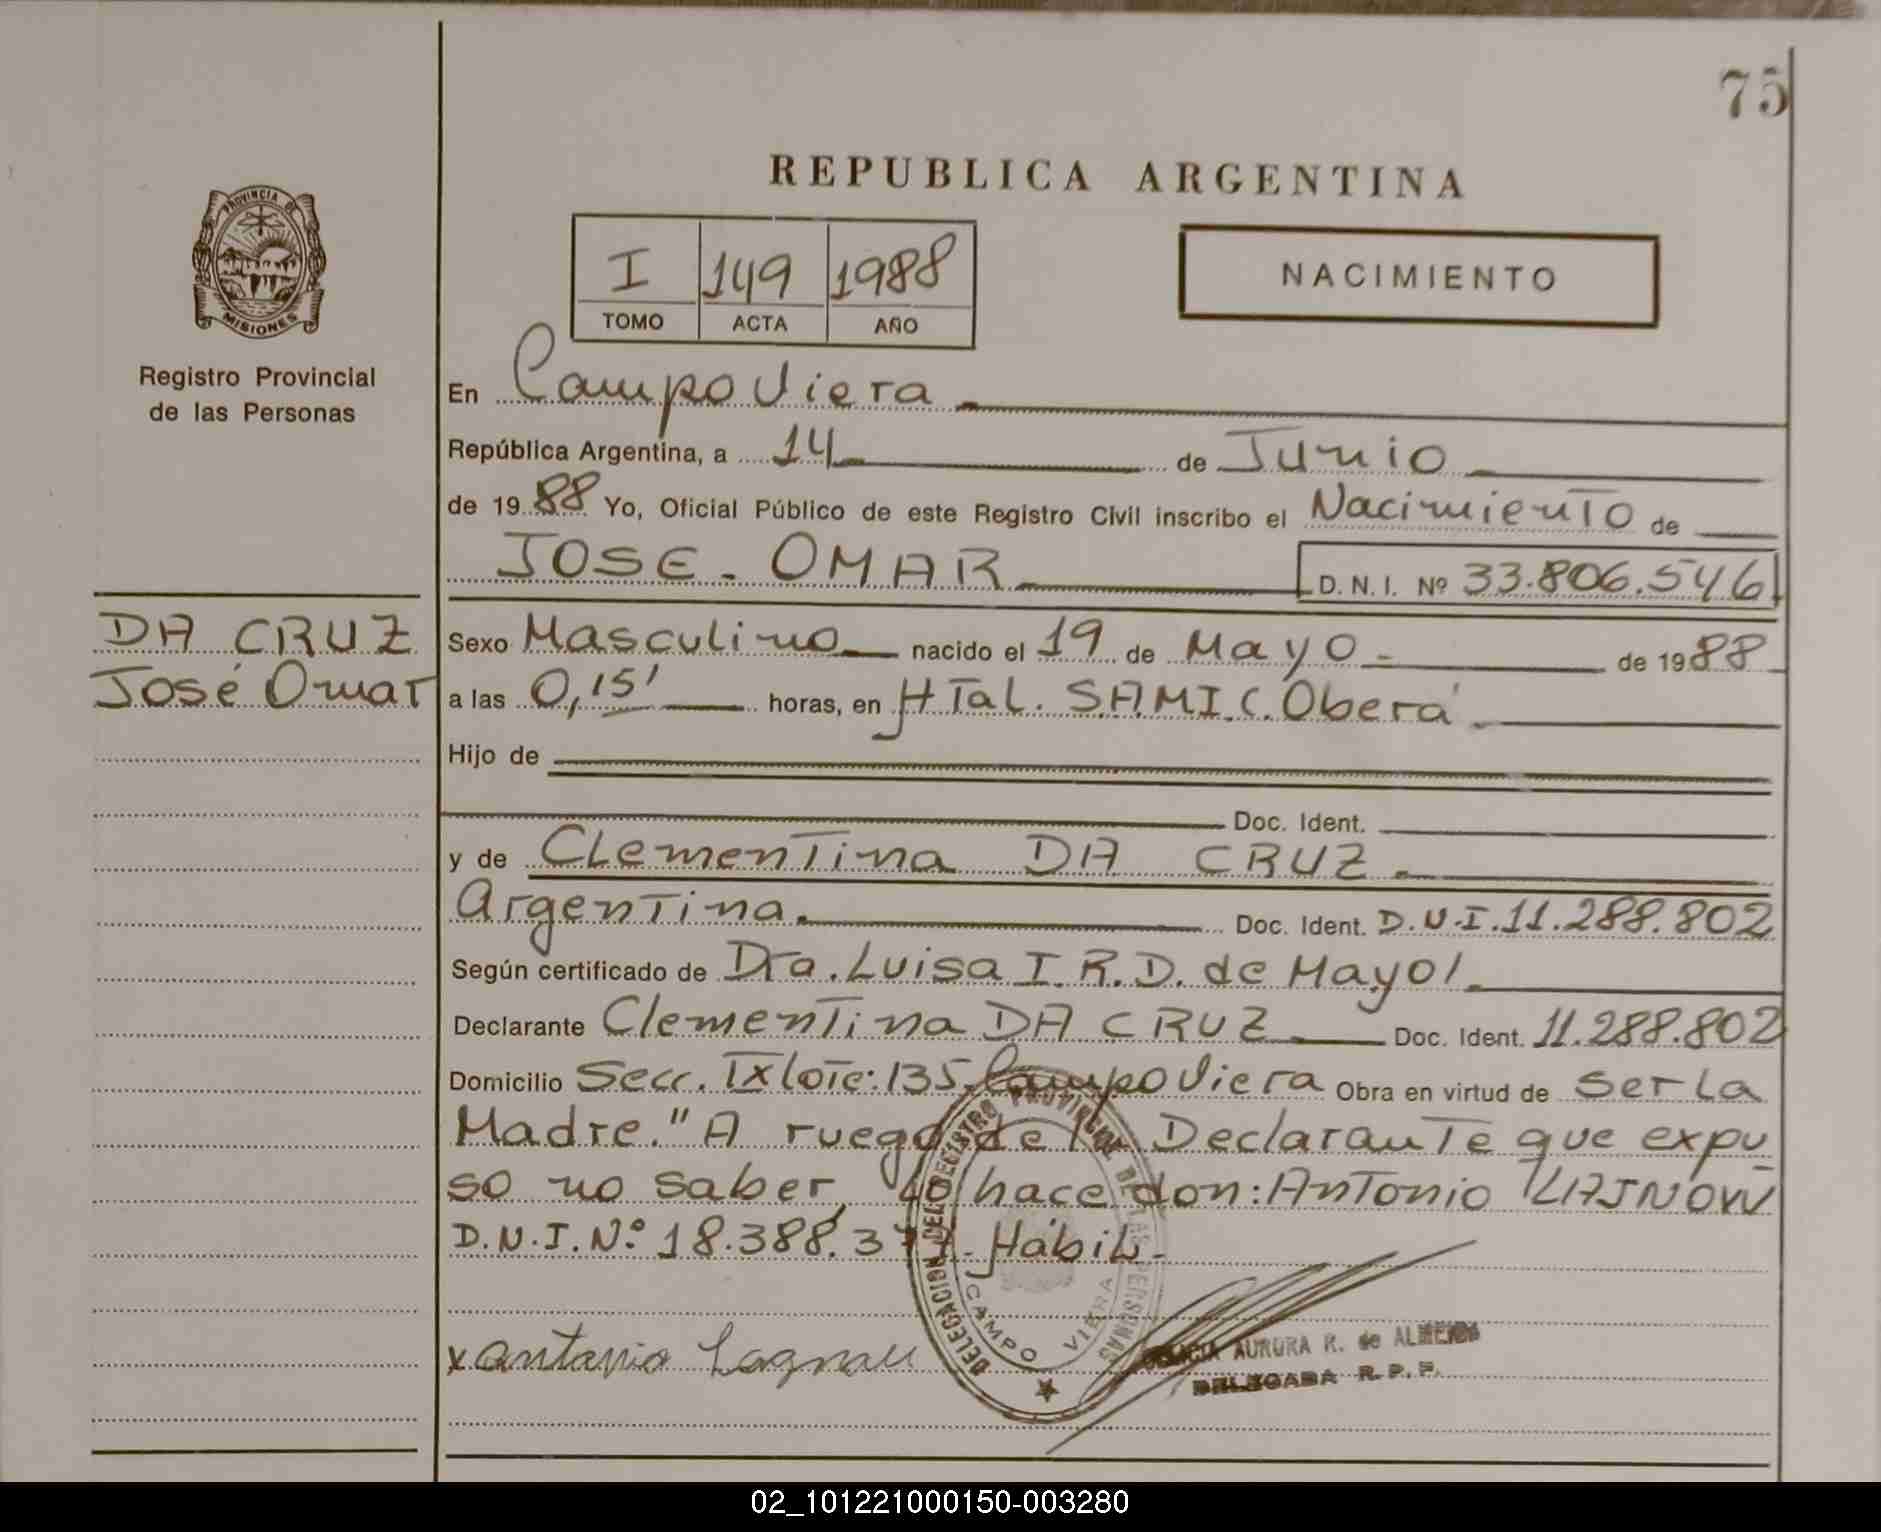 75
REPUBLICA ARGENTINA
PROVINCIA DE
MISIONES
Registro Provincial
de las Personas
I 149 1988
TOMO ACTA AÑO
NACIMIENTO
En Campo Viera
República Argentina, a 14 de Junio
de 1988 Yo, Oficial Público de este Registro Civil inscribo el Nacimiento de
JOSE - OMAR D. N. I. Nº 33.806.546
DA CRUZ
José Omar
Sexo Masculino nacido el 19 de Mayo - de 1988
a las 0,15' horas, en HTal. S.A.M.I.C. Oberá
Hijo de
Doc. Ident.
y de Clementina DA CRUZ.
Argentina. Doc. Ident. D.N.I. 11.288.802
Según certificado de Dra. Luisa I. R. D. de Mayol
Declarante Clementina DA CRUZ Doc. Ident. 11.288.802
Domicilio Secc. IX lote: 135, Campo Viera Obra en virtud de ser la
Madre. "A ruego de la Declarante que expu
so no saber, lo hace don: Antonio
D.N.I. Nº 18.388.37 - Hábil -
DELEGACION DEL REGISTRO PROVINCIAL DE LAS PERSONAS
CAMPO VIERA
x Antonio
AURORA R. de ALMEIDA
DELEGADA R. P. P.
02_101221000150-003280